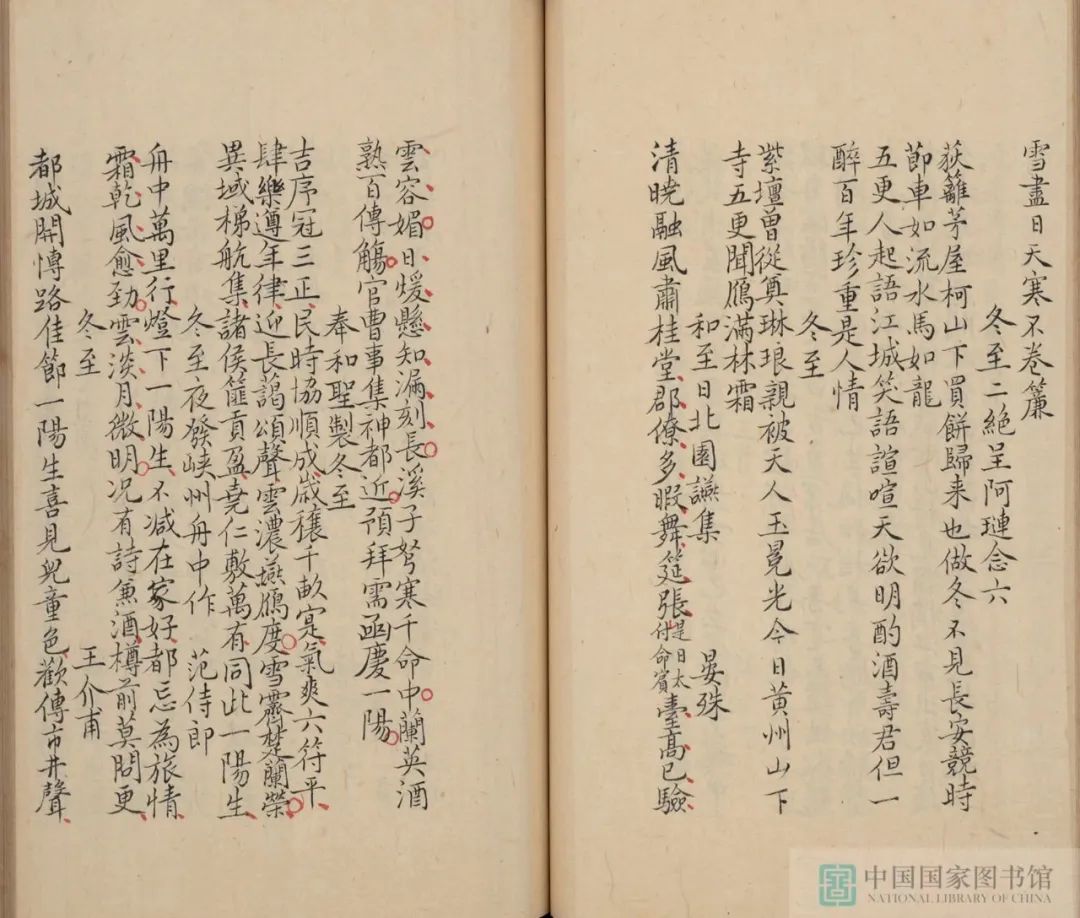 雪盡日天寒不卷簾
冬至二絕呈阿璉念六
荻籬茅屋柯山下買餅歸来也做冬不見長安競時
節車如流水馬如龍
五更人起語江城笑語諠喧天欲明酌酒壽君但一
醉百年珍重是人情
冬至
紫壇曾從奠琳琅親被天人玉冕光今日黃州山下
寺五更聞鴈滿林霜
和至日北園讌集 晏殊
清曉融風肅桂堂郡僚多暇舞筵張是日太付命賓臺高已驗
雲容媚日煖懸知漏刻長溪子弩寒千命中蘭英酒
熟百傳觴官曹事集神都近預拜需函慶一陽
奉和聖製冬至
吉序冠三正民時協順成歲穰千畝寔氣爽六符平
肆樂遵年律迎長藹頌聲雲濃燕鴈度雪霽楚蘭榮
異域梯航集諸侯篚貢盈堯仁敷萬有同此一陽生
冬至夜發峽州舟中作 范侍郎
舟中萬里行燈下一陽生不减在家好都忘為旅情
霜乾風愈劲雲淡月微明况有詩兼酒樽前莫問更
冬至 王介甫
都城開愽路佳節一陽生喜見兒童色歡傳市井聲
中国国家图书馆
NATIONAL LIBRARY OF CHINA